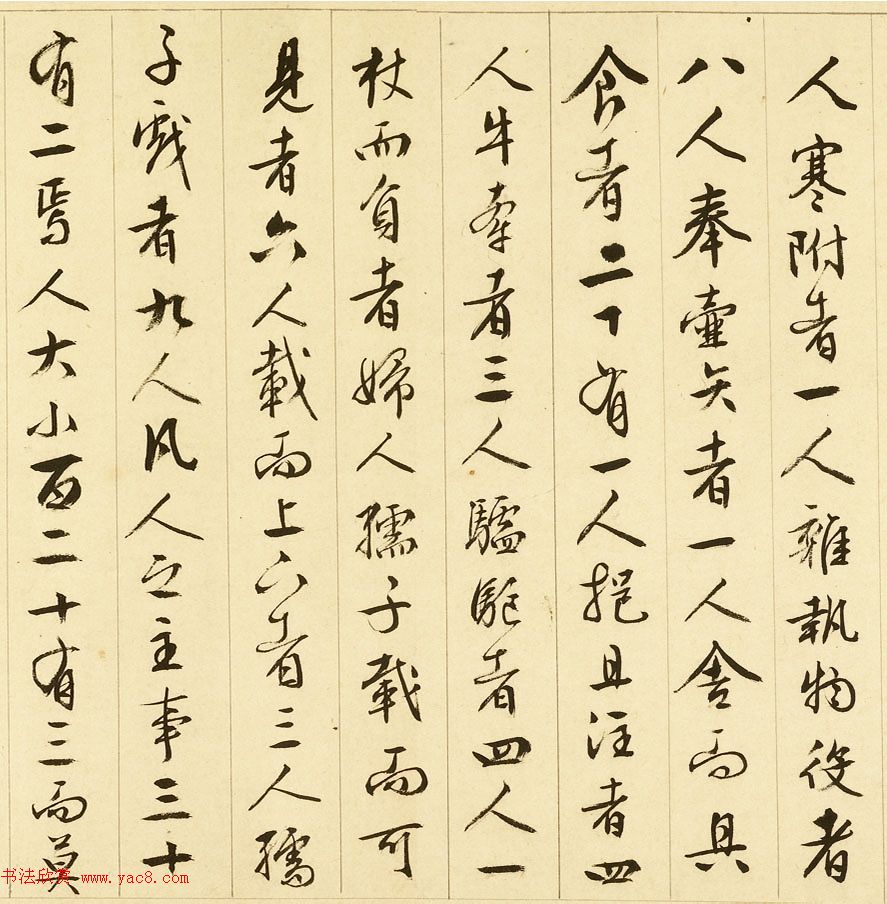 人寒附者一人雜執物役者
八人奉壷矢者一人舍而具
食者二丁有一人挹且注者四
人牛牽者三人驢駝者四人一
杖而負者婦人孺子載而可
見者六人載而上下者三人孺
子戲者九人凡人之主事三十
有二焉人大小百二十有三而莫
书法欣赏 www.yac8.com